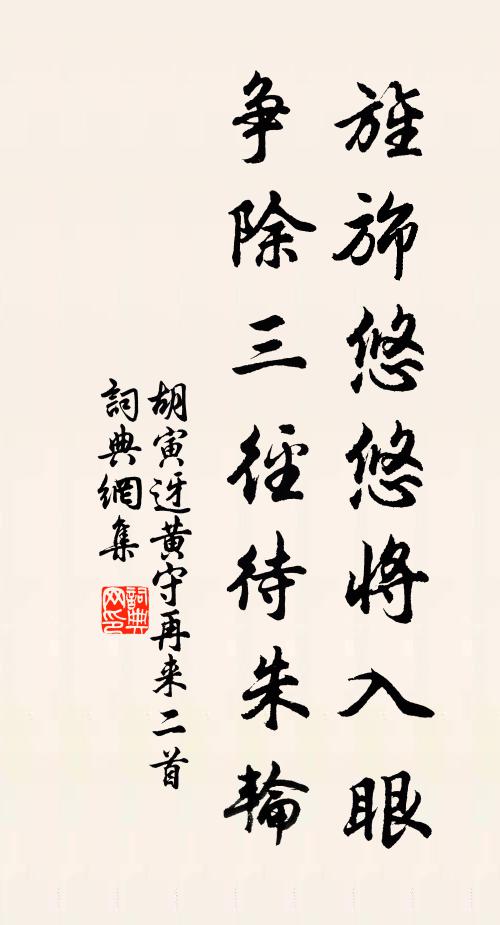 旌旆悠悠將入眼
爭除三徑待朱輪
胡寅迓黃守再来二首
詞典網集
詞典网印